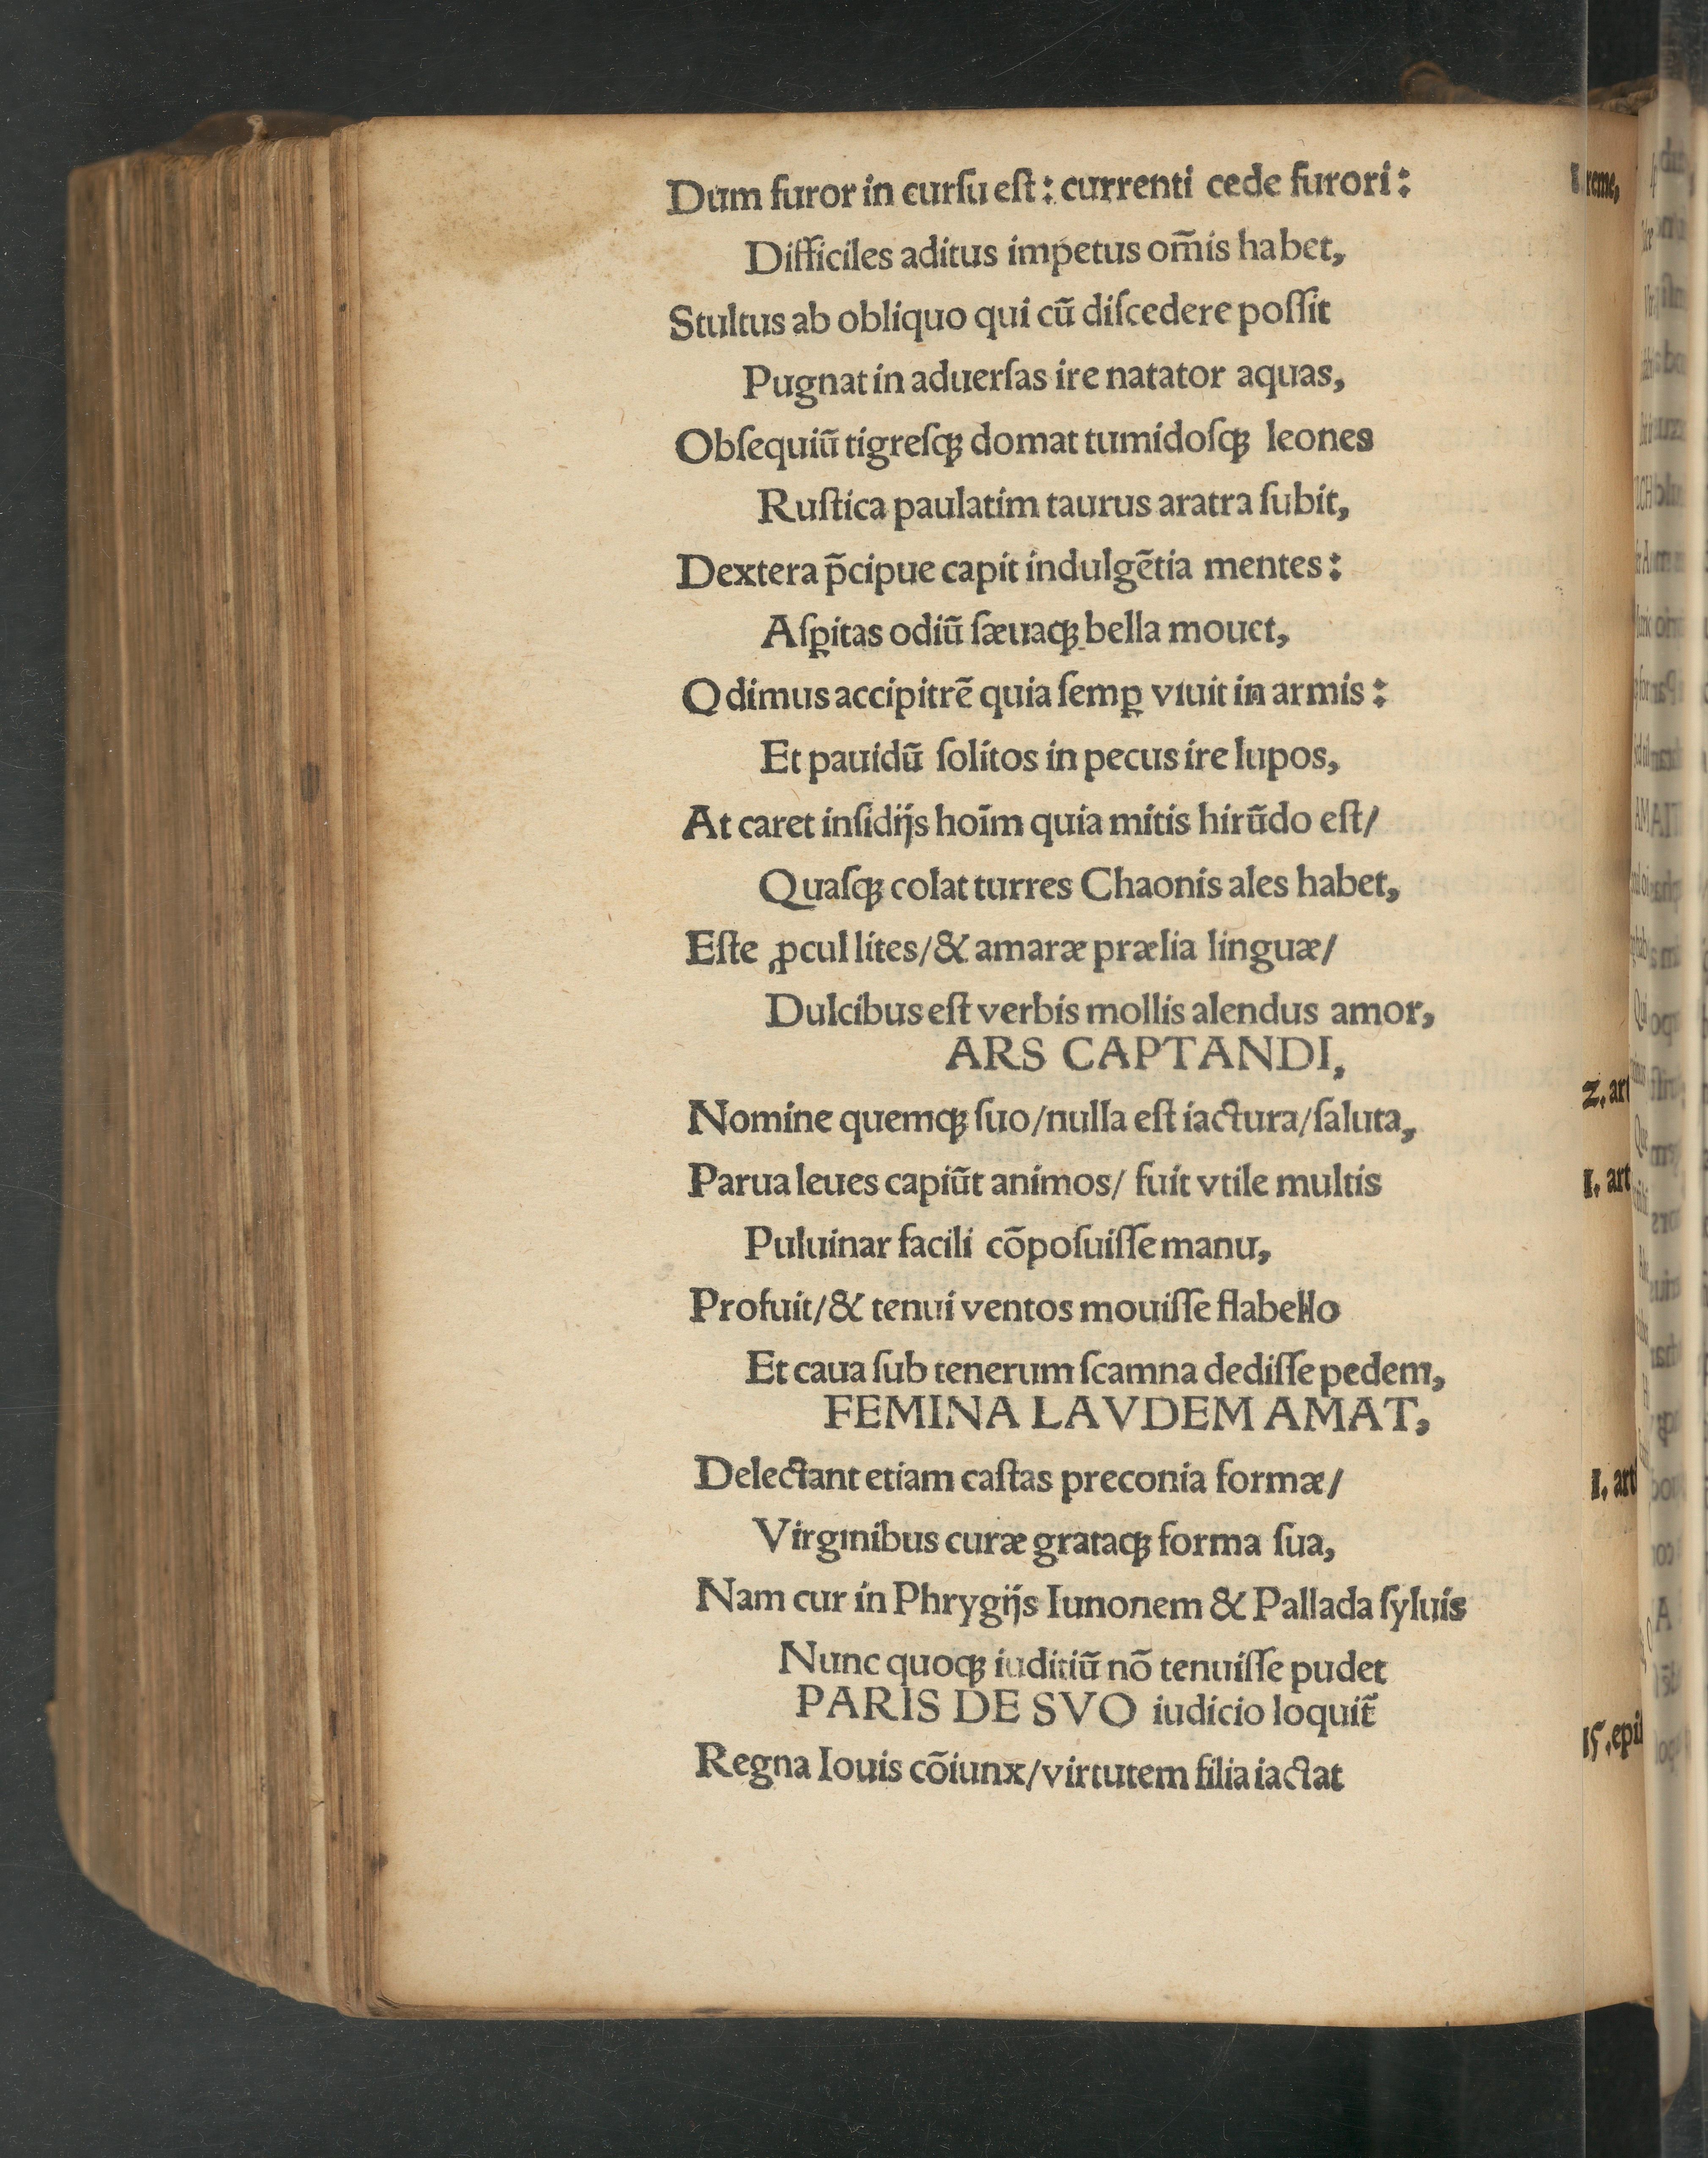 Dum furor in curſu eſt: currenti cede furori: I. reme,
Difficiles aditus impetus om̃is habet,
Stultus ab obliquo qui cũ diſcedere poſſit
Pugnat in aduerſas ire natator aquas,
Obſequiũ tigreſqꝫ domat tumidoſqꝫ leones
Ruſtica paulatim taurus aratra ſubit,
Dextera p̃cipue capit indulgẽtia mentes:
Aſꝑitas odiũ ſæuaqꝫ bella mouet,
Odimus accipitrẽ quia ſemꝑ viuit in armis:
Et pauidũ ſolitos in pecus ire lupos,
At caret inſidijs hoĩm quia mitis hirũdo eſt/
Quaſqꝫ colat turres Chaonis ales habet,
Eſte ꝓcul lites/& amaræ prælia linguæ/
Dulcibus eſt verbis mollis alendus amor,
ARS CAPTANDI,
Nomine quemqꝫ ſuo/nulla eſt iactura/ſaluta, 2. art
Parua leues capiũt animos/ fuit vtile multis I. art
Puluinar facili cõpoſuiſſe manu,
Profuit/& tenui ventos mouiſſe flabello
Et caua ſub tenerum ſcamna dediſſe pedem,
FEMINA LAVDEM AMAT,
Delectant etiam caſtas preconia formæ/ I. art
Virginibus curæ grataqꝫ forma ſua,
Nam cur in Phrygijs Iunonem & Pallada ſyluis
Nunc quoqꝫ iuditiũ nõ tenuiſſe pudet
PARIS DE SVO iudicio loquit̃ 15. epiſ
Regna Iouis cõiunx/virtutem filia iactat